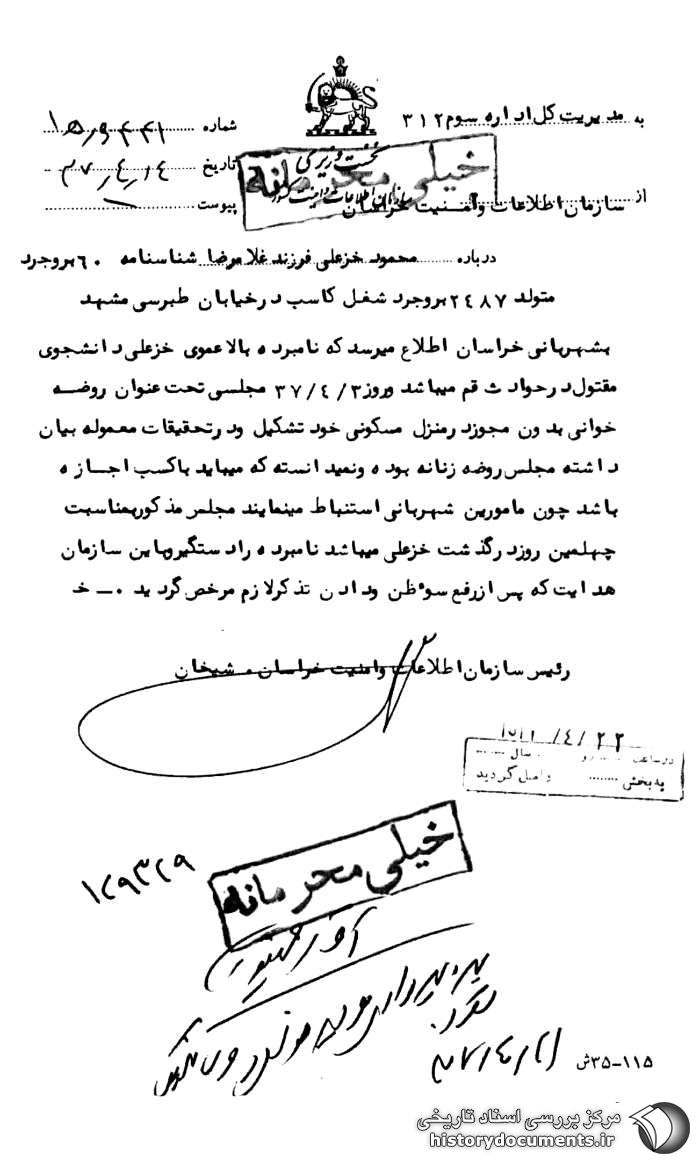 به مدیریت کل اداره سوم ۳۱۲
شماره ۱۵۹۴۴۱
نخست وزیری
خیلی محرمانه
تاریخ ۳۷/۴/۱۴
سازمان اطلاعات و امنیت کشور
از سازمان اطلاعات و امنیت خراسان
پیوست
درباره محمود خزعلی فرزند غلامرضا شناسنامه ۶۰ بروجرد
متولد ۲۴۸۷ بروجرد شغل کاسب در خیابان طبرسی مشهد
بشهربانی خراسان اطلاع میرسد که نامبرده بالا عموی خزعلی دانشجوی
مقتول در حوادث قم میباشد و روز ۳۷/۴/۳ مجلسی تحت عنوان روضه
خوانی بدون مجوز در منزل مسکونی خود تشکیل و در تحقیقات معموله بیان
داشته مجلس روضه زنانه بوده و نمیدانسته که میباید با کسب اجازه
باشد چون مامورین شهربانی استنباط مینمایند مجلس مذکور بمناسبت
چهلمین روز درگذشت خزعلی میباشد نامبرده را دستگیر و باین سازمان
هدایت که پس از رفع سوء ظن و دادن تذکر لازم مرخص گردید ۰ــ خ
رئیس سازمان اطلاعات و امنیت خراسان ۰ شیخان
۲۲/۴/
در ساعت روز سال
به بخش واصل گردید
۱۲۹۳۲۹
خیلی محرمانه
۳۷/۴/۲۱
۱۱۵-۳۵ش
مرکز بررسی اسناد تاریخی
historydocuments.ir